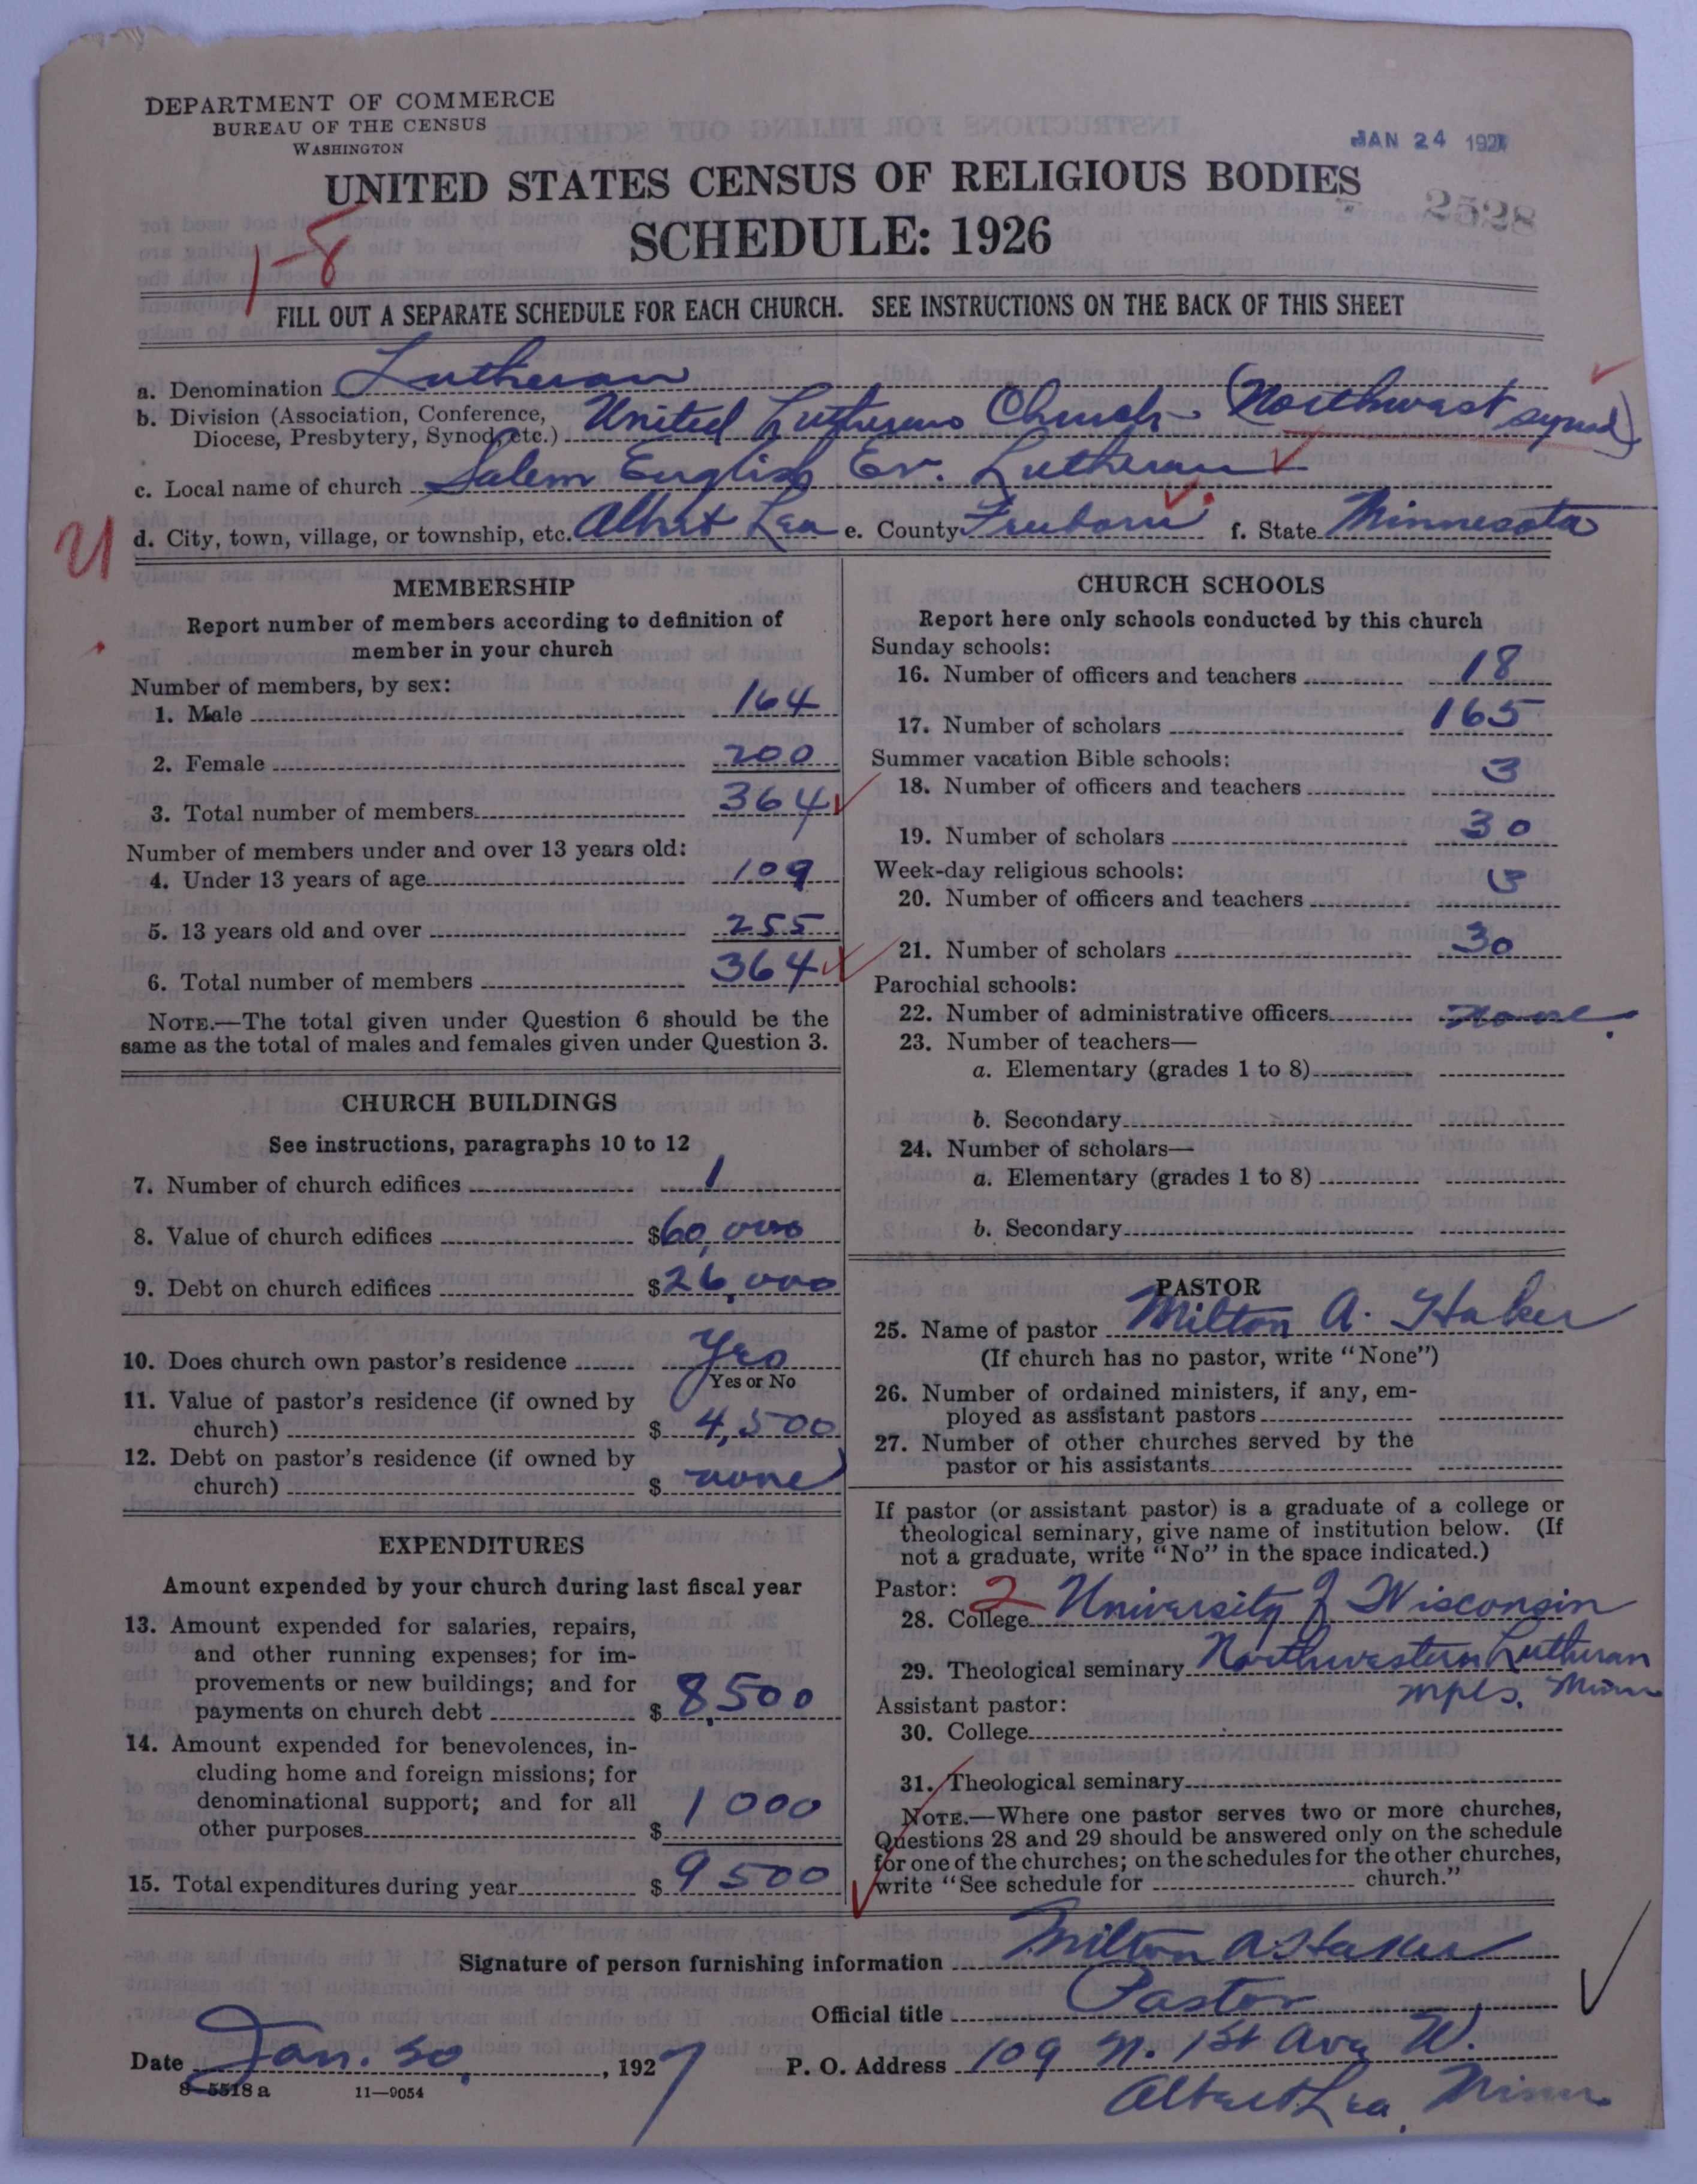 DEPARTMENT OF COMMERCE
BUREAU OF THE CENSUS
WASHINGTON
JAN 24 1927
UNITED STATES CENSUS OF RELIGIOUS BODIES
2528
SCHEDULE: 1926
1-8
FILL OUT A SEPARATE SCHEDULE FOR EACH CHURCH. SEE INSTRUCTIONS ON THE BACK OF THIS SHEET
a. Denomination Lutheran
b. Division (Association, Conference, Diocese, Presbytery, Synod, etc.) United Lutheran Church (Northwest synod)
c. Local name of church Salem English Ev. Lutheran
U
d. City, town, village, or township, etc. Albert Lea e. County Freeborn f. State Minnesota
MEMBERSHIP
Report number of members according to definition of
member in your church
Number of members, by sex:
1. Male 164
2. Female 200
3. Total number of members 364
Number of members under and over 13 years old:
4. Under 13 years of age 109
5. 13 years old and over 255
6. Total number of members 364
NOTE.—The total given under Question 6 should be the
same as the total of males and females given under Question 3.
CHURCH BUILDINGS
See instructions, paragraphs 10 to 12
7. Number of church edifices 1
8. Value of church edifices $60,000
9. Debt on church edifices $26,000
10. Does church own pastor's residence Yes
Yes or No
11. Value of pastor's residence (if owned by
church) $ 4,500
12. Debt on pastor's residence (if owned by
church) $ none
EXPENDITURES
Amount expended by your church during last fiscal year
13. Amount expended for salaries, repairs,
and other running expenses; for im-
provements or new buildings; and for
payments on church debt $ 8,500
14. Amount expended for benevolences, in-
cluding home and foreign missions; for
denominational support; and for all
other purposes $ 1000
15. Total expenditures during year $ 9500
CHURCH SCHOOLS
Report here only schools conducted by this church
Sunday schools:
16. Number of officers and teachers 18
17. Number of scholars 165
Summer vacation Bible schools:
18. Number of officers and teachers 3
19. Number of scholars 30
Week-day religious schools:
20. Number of officers and teachers 3
21. Number of scholars 30
Parochial schools:
22. Number of administrative officers none.
23. Number of teachers—
a. Elementary (grades 1 to 8)
b. Secondary
24. Number of scholars—
a. Elementary (grades 1 to 8)
b. Secondary
PASTOR
25. Name of pastor Milton A. Haker
(If church has no pastor, write "None")
26. Number of ordained ministers, if any, em-
ployed as assistant pastors
27. Number of other churches served by the
pastor or his assistants
If pastor (or assistant pastor) is a graduate of a college or
theological seminary, give name of institution below. (If
not a graduate, write "No" in the space indicated.)
Pastor: 2
28. College University of Wisconsin
29. Theological seminary Northwestern Lutheran
Mpls. Minn
Assistant pastor:
30. College
31. Theological seminary
NOTE.—Where one pastor serves two or more churches,
Questions 28 and 29 should be answered only on the schedule
for one of the churches; on the schedules for the other churches,
write "See schedule for church."
Signature of person furnishing information Milton A Haker
Official title Pastor
Date Jan. 20, 1927 P. O. Address 109 N. 1st Ave W.
8—5518 a 11—9054
Albert Lea, Minn.